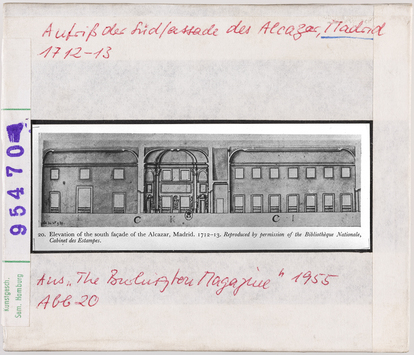 Aufriß der Südfassade des Alcazar, Madrid
1712-13
95470
kunstgesch.
Sem. Hamburg
C K C I
20. Elevation of the south façade of the Alcazar, Madrid. 1712–13. Reproduced by permission of the Bibliothèque Nationale,
Cabinet des Estampes.
Aus „The Burlington Magazine" 1955
Abb 20